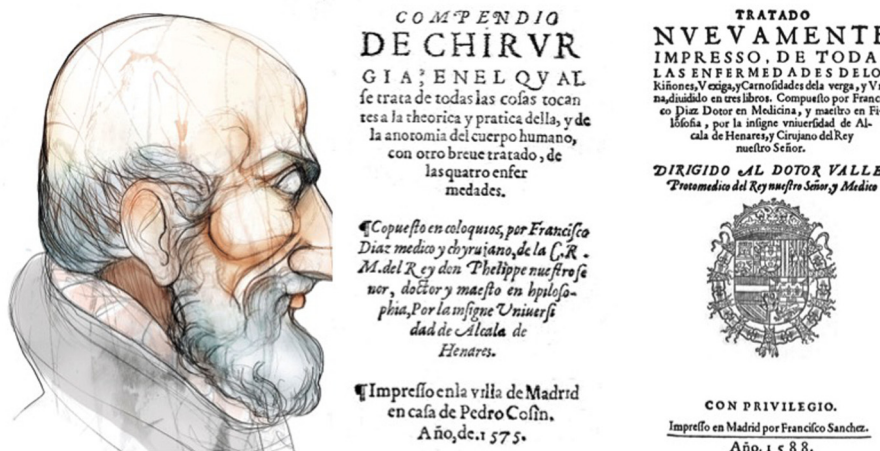 COMPENDIO
DE CHIRVR
GIA: EN EL QVAL
se trata de todas las cosas tocan
tes a la theorica y pratica della, y de
la anotomia del cuerpo humano,
con otro breue tratado, de
las quatro enfer
medades.
¶Copuesto en coloquios, por Francisco
Diaz medico y chyrujano, de la C.R.
M. del Rey don Phelippe nuestro se
nor, doctor y maesto en hpiloso-
phia, Por la insigne Vniuersi
dad de Alcala de
Henares.
¶Impresso en la villa de Madrid
en casa de Pedro Cosin.
Año, de. 1575.
TRATADO
NVEVAMENTE
IMPRESSO, DE TODA
LAS ENFERMEDADES DELO
Riñones, Vexiga, y Carnosidades dela verga, y Vr
na, diuidido en tres libros. Compuesto por Franc
co Diaz Dotor en Medicina, y maestro en Fi
losofia, por la insigne vniuersidad de Al-
cala de Henares, y Cirujano del Rey
nuestro Señor.
DIRIGIDO AL DOTOR VALLE
Protomedico del Rey nuestro Señor, y Medico
CON PRIVILEGIO.
Impresso en Madrid por Francisco Sanchez.
Año. 1588.